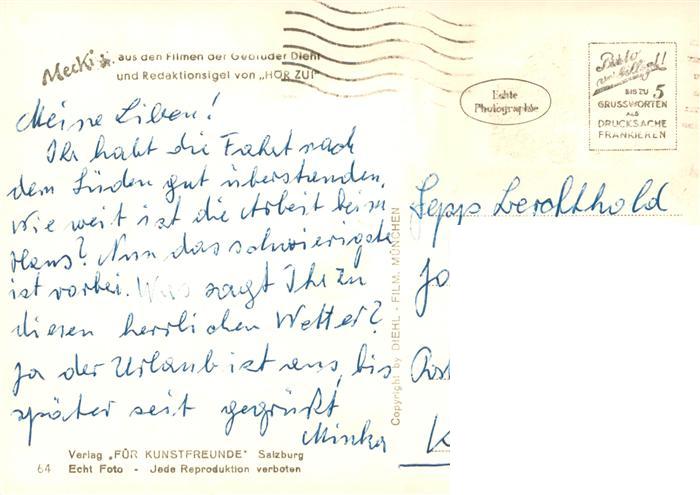 Mecki, aus den Filmen der Gebrüder Diehl
und Redaktionsigel von „HÖR ZU!"
Meine Lieben!
Ihr habt die Fahrt nach
dem Süden gut überstanden.
Wie weit ist die Arbeit beim
Haus? Nun das schwierigste
ist vorbei. Was sagt Ihr zu
diesen herrlichen Wetter?
Ja der Urlaub ist aus, bis
später seit gegrüßt
Minka
Verlag „FÜR KUNSTFREUNDE" Salzburg
64 Echt Foto - Jede Reproduktion verboten
Copyright by DIEHL - FILM, MÜNCHEN
Echte
Photographie
Bitte
BIS ZU 5
GRUSSWORTEN
ALS
DRUCKSACHE
FRANKIEREN
Sepp Berchthold